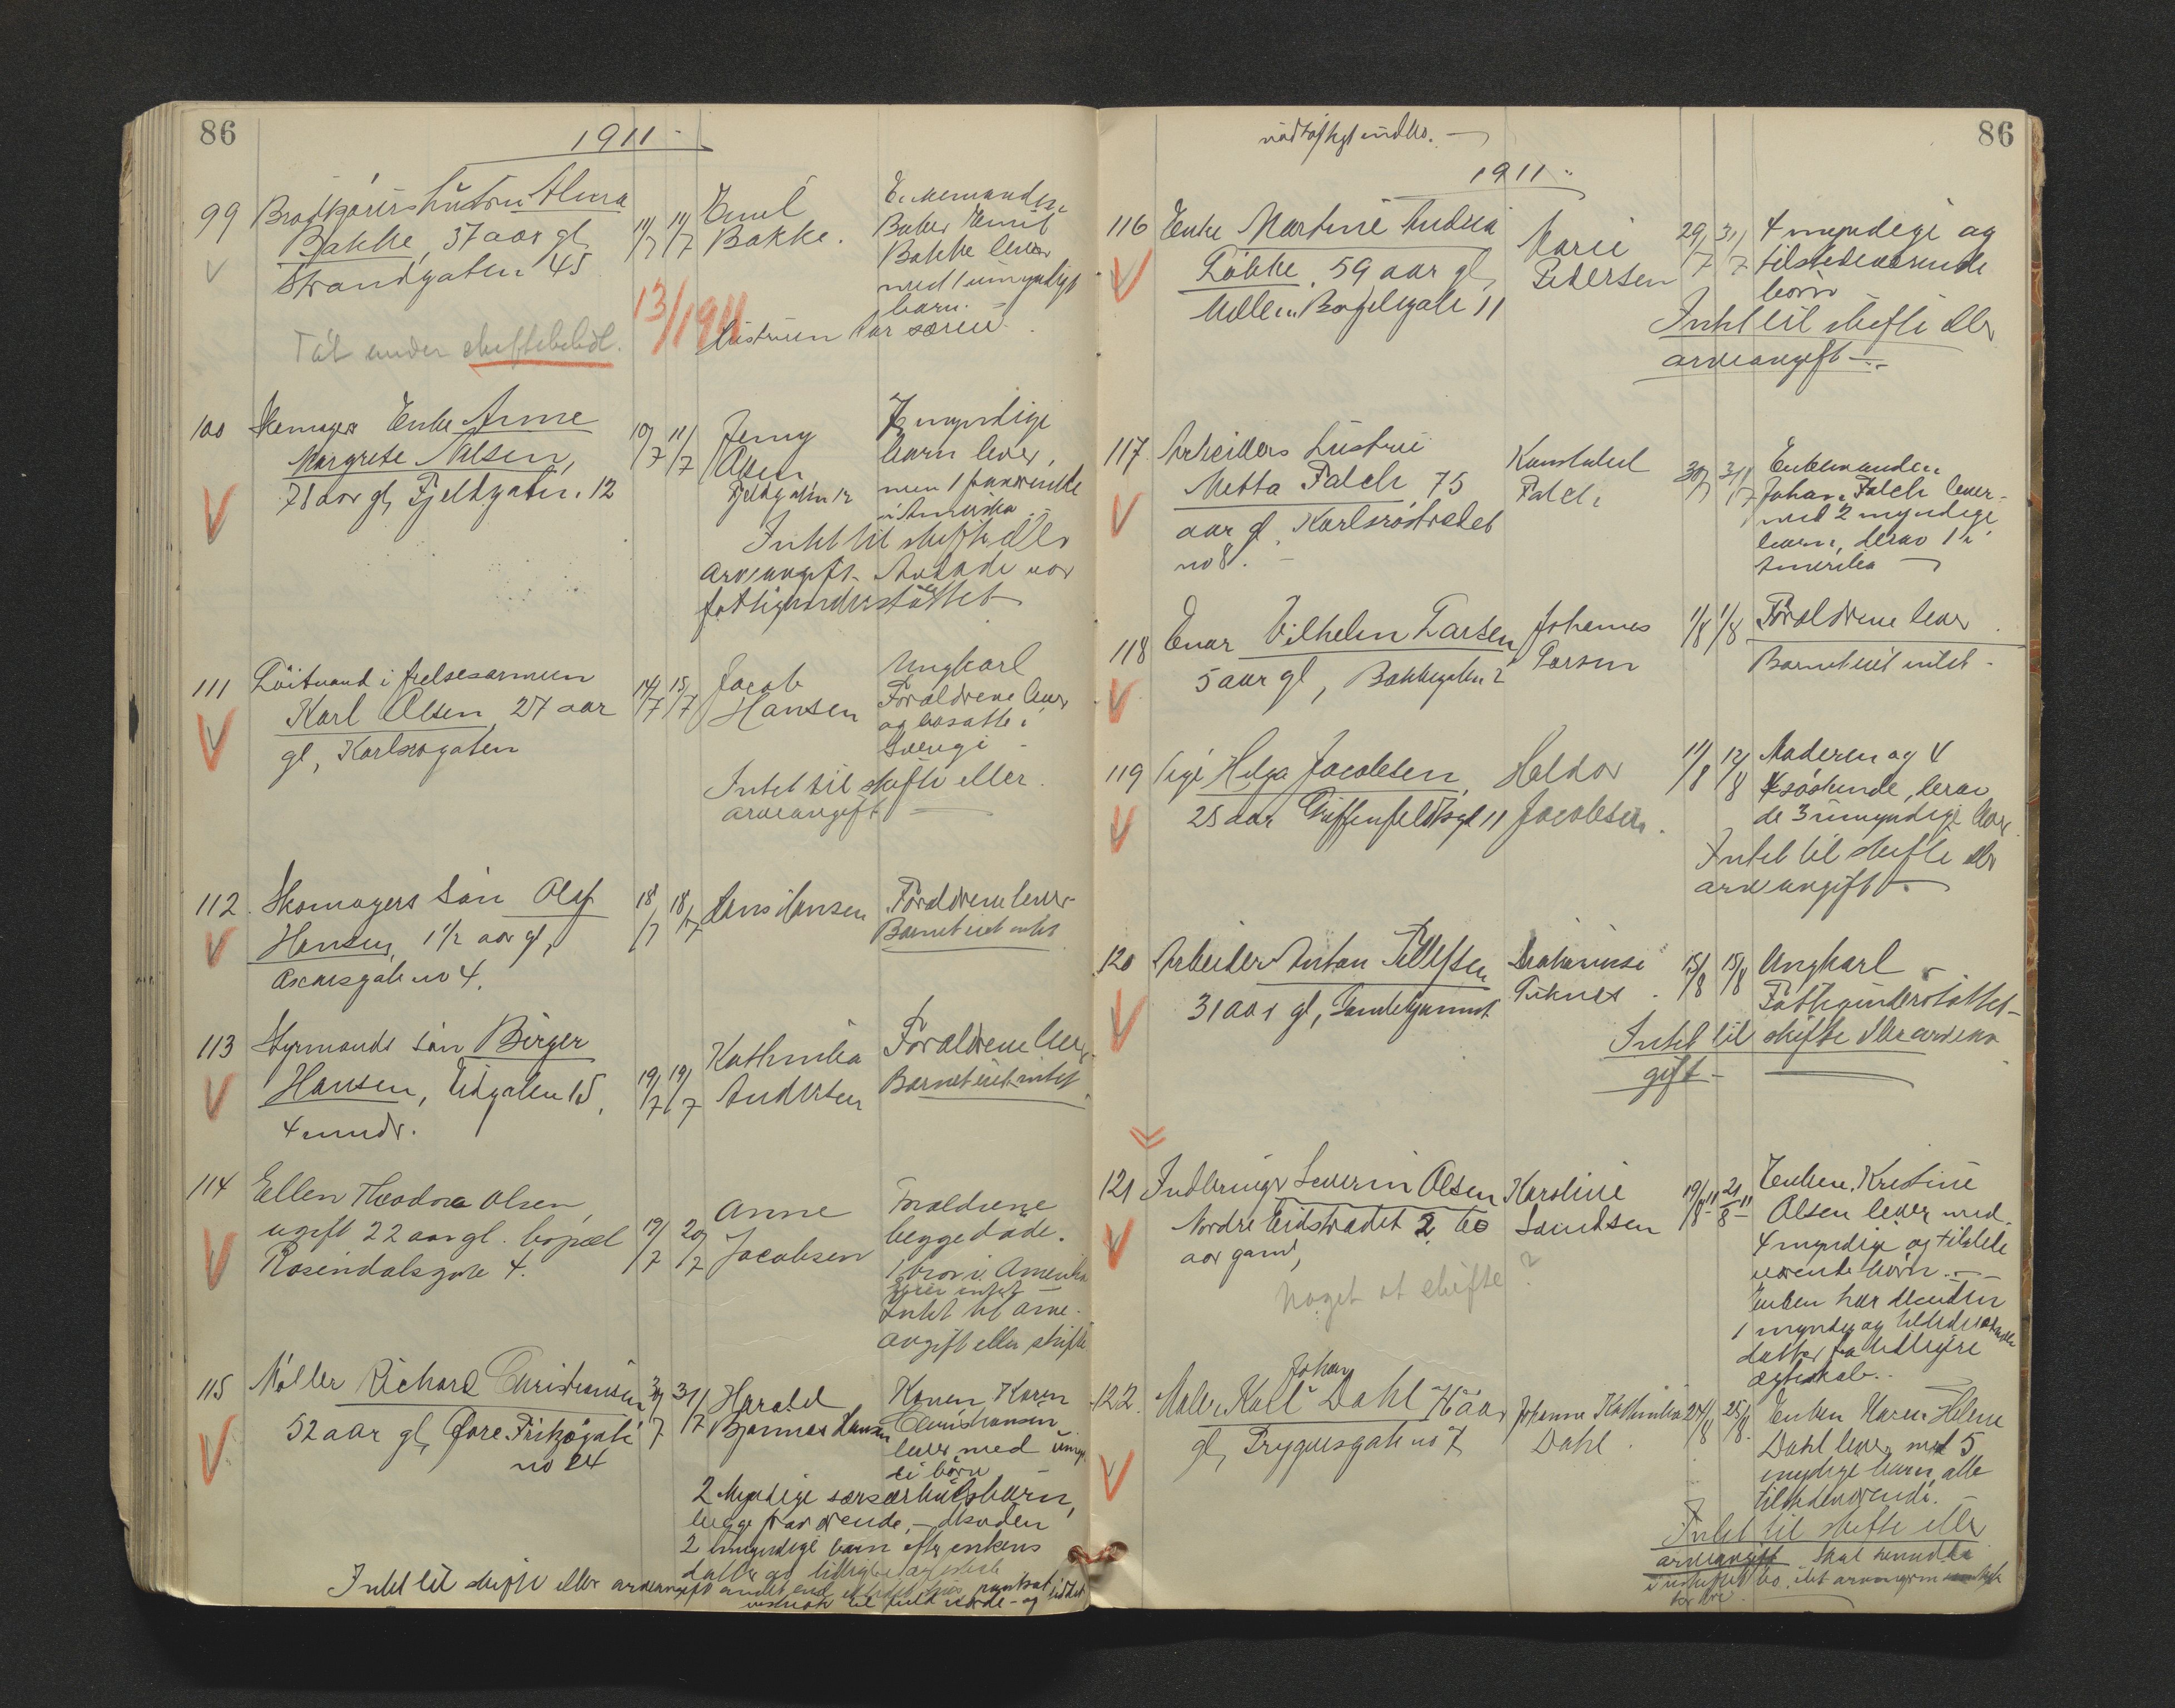 86
1911
99 Brødkjørers hustru Alma
Bakke, 37 aar gl
Strandgaten 45
11/7 11/7
Emil
Bakke.
Enkemanden
Baker Emil
Bakke lever
med 1 umyndigt
barn.
Hustruen har særeie
13/1911
Tat under skiftebehdl.
100 Skomager Enke Anne
Margrete Nilsen,
78 aar gl, Fjeldgaten 12
10/7 11/7
Jenny
Olsen
Fjeldgaten 12
7 myndige
barn lever,
men 1 fraværende
i Amerika
Intet til skifte eller
arveavgift. Avdøde var
fattigunderstøttet
111 Løitnand i frelsesarmeen
Karl Olsen 27 aar
gl, Karlsrogaten
14/7 15/7
Jacob
Hansen
Ungkarl
Forældrene lever
og bosatte i
Sverige
Intet til skifte eller
arveavgift
112. Skomagers søn Olaf
Hansen, 1 1/2 aar gl,
no 4.
18/7 18/7
Hans Hansen
Forældrene lever
Barnet eiet intet
113 Styrmands søn Birger
Hansen, Eidgaten 15,
4 mndr.
19/7 19/7
Kathinka
Andersen
Forældrene lever
Barnet eiet intet
114 Ellen Theodora Olsen,
ugift 22 aar gl. bopæl
Rosendalsgate 4.
19/7 20/7
Anne
Jacobsen
Forældrene
begge døde.
1 bror i Amerika
Eier intet
Intet til arve-
avgift eller skifte
115 Møller Richard Christiansen
52 aar gl, Øvre Fritzøgate
no 24
30/7 31/7
Harald
Bjarnes Hansen
Konen Karen
Christiansen
lever med umyn
di børn
2 Myndige særkuldsbarn,
begge fraværende, – desuden
2 umyndige barn efter enkens
datter av tidligere egteskab
Intet til skifte eller arveavgift andet end
til fuld raade- og
86
rådighet endes. –
1911
116 Enke Martine Andrea
Løkke, 59 aar gl,
Mellem Bøgelegate 11
Marie
Pedersen
29/7 31/7
4 myndige og
tilstedeværende
børn
Intet til skifte eller
arveavgift –
117 Arbeiders hustru
Metta Falch 75
aar gl. Karlsrostrædet
no 8. –
Konstabel
Falch
30/7 31/7
Enkemanden
Johan Falch lever
med 2 myndige
barn, derav 1 i
Amerika
118 Einar Vilhelm Larsen
5 aar gl, Bakkegaten 2
Johannes
Larsen
1/8 1/8
Forældrene lever
Barnet eiet intet –
119 Pige Helga Jacobsen
25 aar Griffenfeldtsgt 11
Haldor
Jacobsen.
11/8 12/8
Moderen og 4
søskende, derav
de 3 umyndige lever
Intet til skifte eller
arveavgift
120 Arbeider Anton Tellefsen
31 aar gl, Gamlehjemmet
15/8 15/8
Ungkarl –
Fattigunderstøttet –
Intet til skifte eller arveav
gift –
121 Indbringer Severin Olsen
Nordre Eidstrædet 2 60
aar gam,
Karoline
Lauritsen
19/8 11 21/8 11
Enken, Kristine
Olsen lever med
4 myndige og tilstede
værende børn. –
Enken har desuden
1 myndig og tilstedeværende
datter fra tidligere
egteskab.
Noget at skifte?
122. Maler Karl Johan Dahl 74 aar
gl, Tryggvesgate no 7
Johanne Kathinka
Dahl.
24/8 25/8
Enken Karen Helene
Dahl lever med 5
myndige barn, alle
tilstedeværende. –
Intet til skifte eller
arveavgift. Skal hensidde
i uskiftet bo.